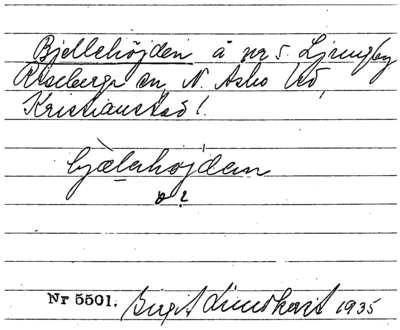 Bjellehöjden å nr 5. Ljungby
Riseberga sn, N. Åsbo hd,
Kristianstad l.
bjælahöjden
o?
Nr 5501. Birgit Lindkvist 1935